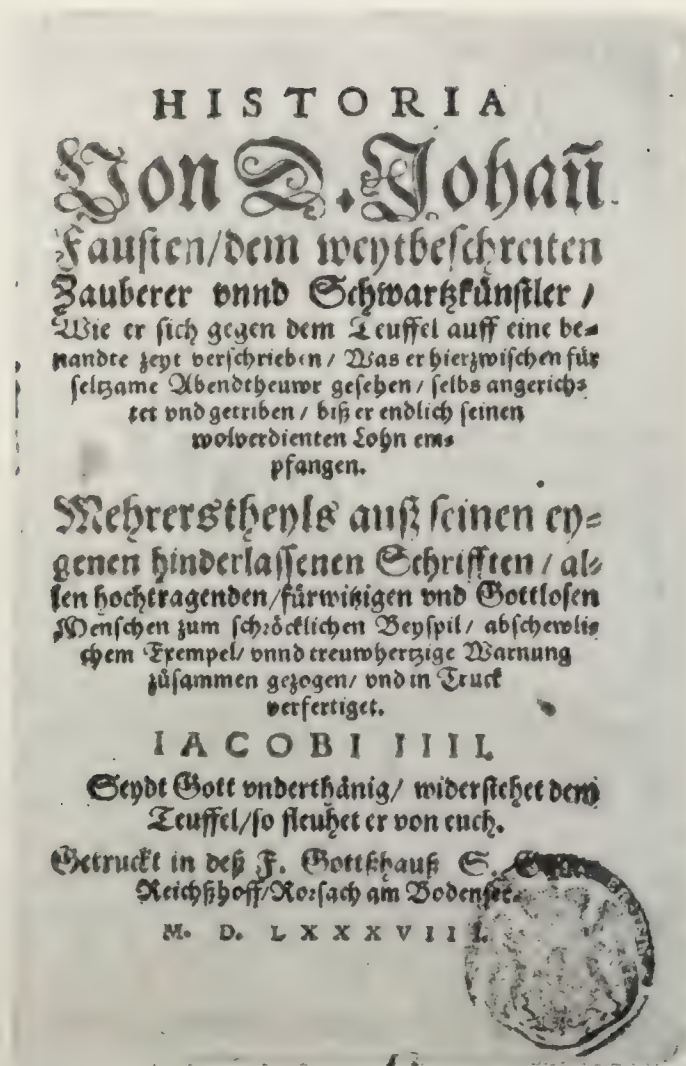 HISTORIA
Von D. Johañ
Fausten/dem weytbeschreiten
Zauberer vnnd Schwartzkünstler /
Wie er sich gegen dem Teuffel auff eine be⸗
nandte zeyt verschrieben / Was er hierzwischen für
seltzame Abendtheuwr gesehen / selbs angerich⸗
tet vnd getriben / biß er endlich seinen
wolverdienten Lohn em⸗
pfangen.
Mehrerstheyls auß seinen ey⸗
genen hinderlassenen Schrifften / al⸗
len hochtragenden/fürwitzigen vnd Gottlosen
Menschen zum schröcklichen Beyspil/ abschewli⸗
chem Exempel/ vnnd treuwhertzige Warnung
züsammen gezogen/ vnd in Truck
verfertiget.
IACOBI IIII.
Seydt Gott vnderthånig/ widerstehet dem
Teuffel/so fleuhet er von euch.
Getruckt in deß F. Gottßhauß S.
Reichßhoff/Rorsach am Bodensee.
M. D. LXXXVIII.